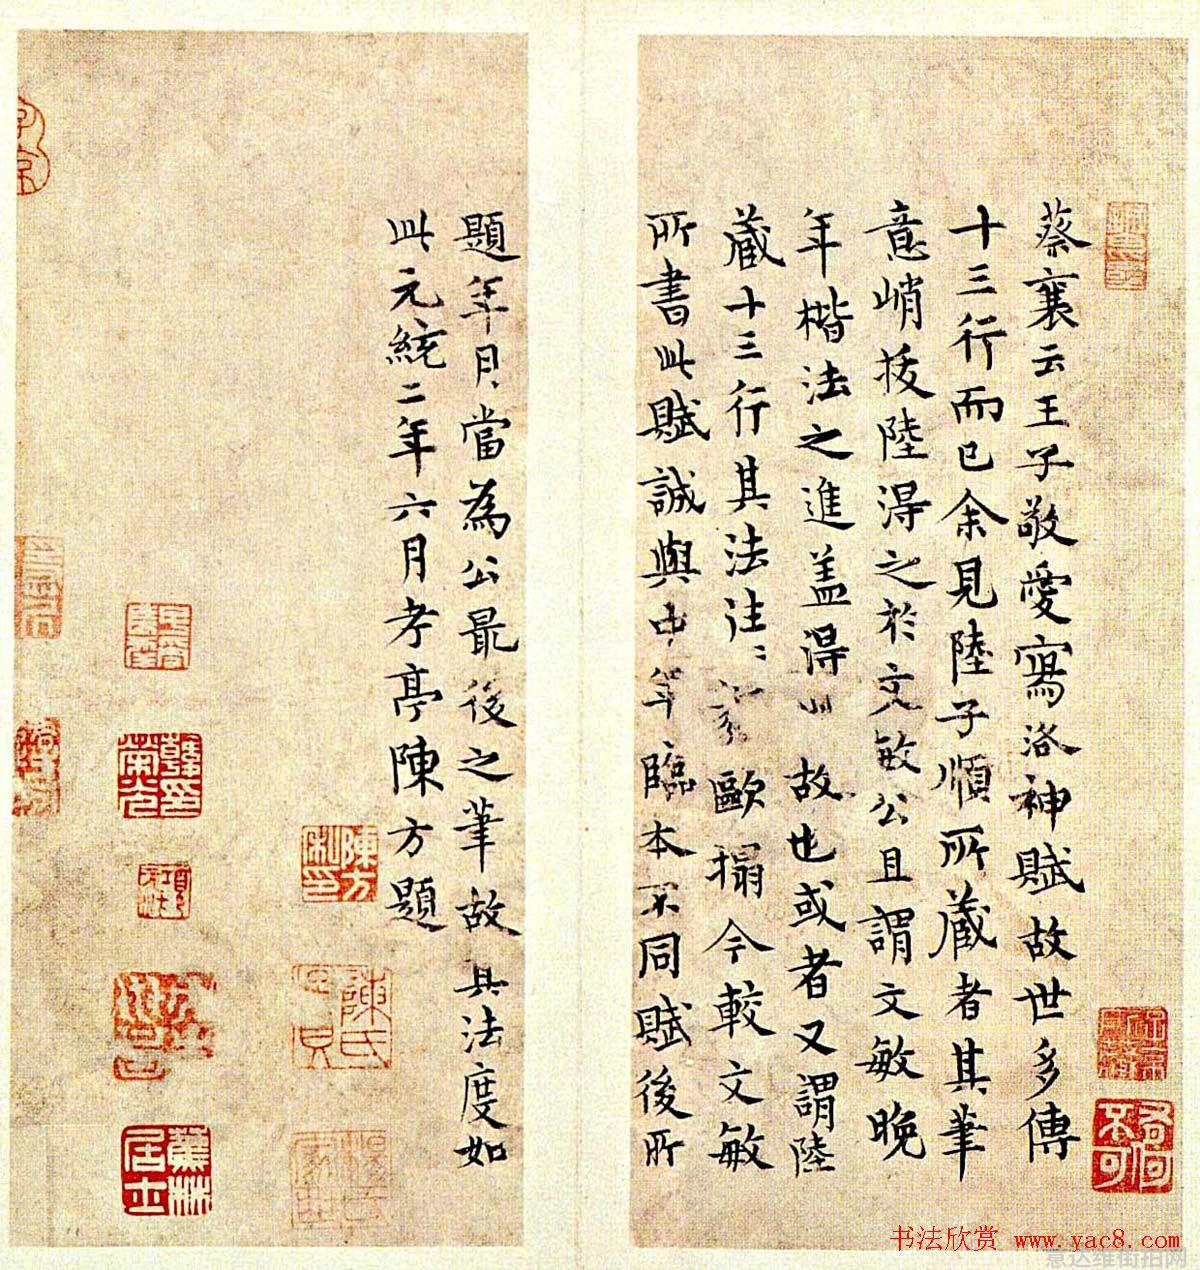 蔡襄云王子敬愛寫洛神賦故世多傳
十三行而已余見陸子順所藏者其筆
意峭拔陸得之於文敏公且謂文敏晚
年楷法之進盖得此故也或者又謂陸
藏十三行其法往往歐搨今較文敏
所書此賦誠與中年臨本不同賦後所
題年月當為公最後之筆故其法度如
此元統二年六月孝亭陳方題
陳方私印
陳氏
蕉林居士
韓世能印
有何不可
书法欣赏 www.yac8.com
意达维街拍网